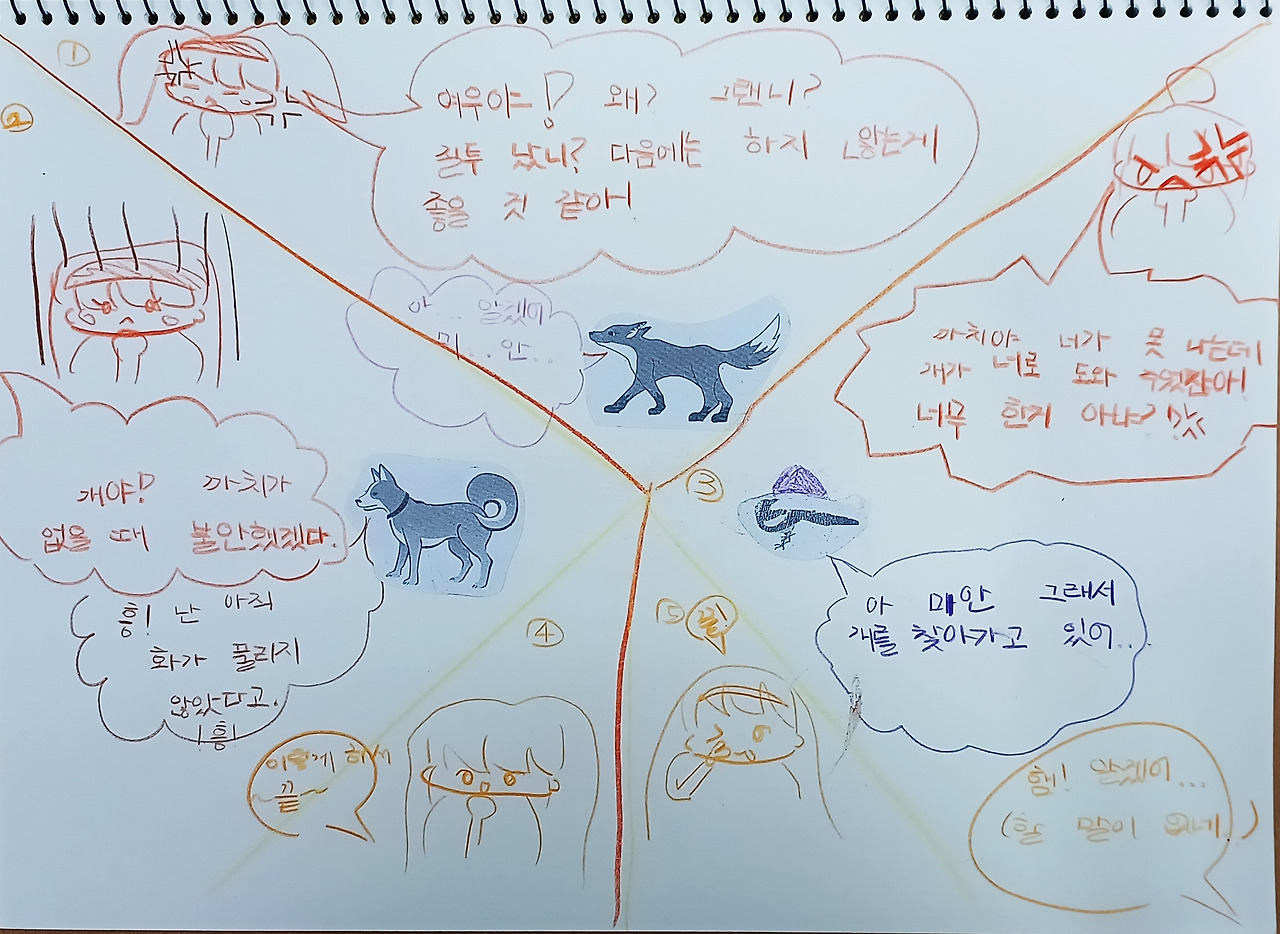 ①
여우야! 왜? 그랬니?
질투 났니? 다음에는 하지 않는게
좋을 것 같아!
아... 알겠어
미...안...
②
개야! 까치가
없을 때 불안했겠다.
흥! 난 아직
화가 풀리지
않았다고.
흥!
③
까치야 너가 못 나는데
개가 너로 도와 주었잖아!
너무 한거 아냐?
아 미안 그래서
개를 찾아가고 있어...
④
이렇게 해서
끝
⑤
끝!
헴! 알겠어...
(할 말이 없네.)